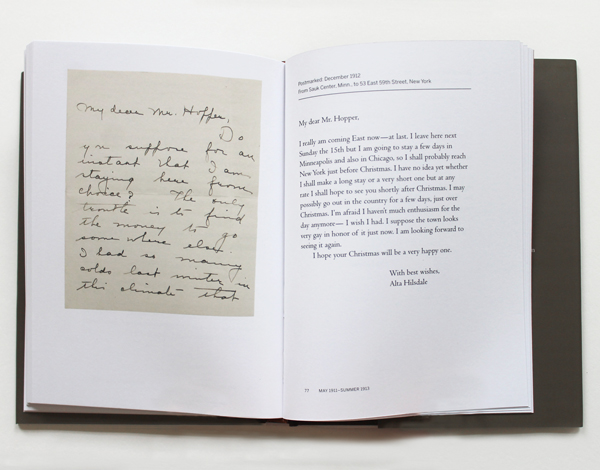 My dear Mr. Hopper,
Do
you suppose for an
instant that I am
staying here from
choice? The only
trouble is to find
the money to go
some where else.
I had so many
colds last winter in
this climate that
Postmarked: December 1912
from Sauk Center, Minn., to 53 East 59th Street, New York
My dear Mr. Hopper,
I really am coming East now—at last. I leave here next
Sunday the 15th but I am going to stay a few days in
Minneapolis and also in Chicago, so I shall probably reach
New York just before Christmas. I have no idea yet whether
I shall make a long stay or a very short one but at any
rate I shall hope to see you shortly after Christmas. I may
possibly go out in the country for a few days, just over
Christmas. I'm afraid I haven't much enthusiasm for the
day anymore— I wish I had. I suppose the town looks
very gay in honor of it just now. I am looking forward to
seeing it again.
I hope your Christmas will be a very happy one.
With best wishes,
Alta Hilsdale
77 MAY 1911–SUMMER 1913